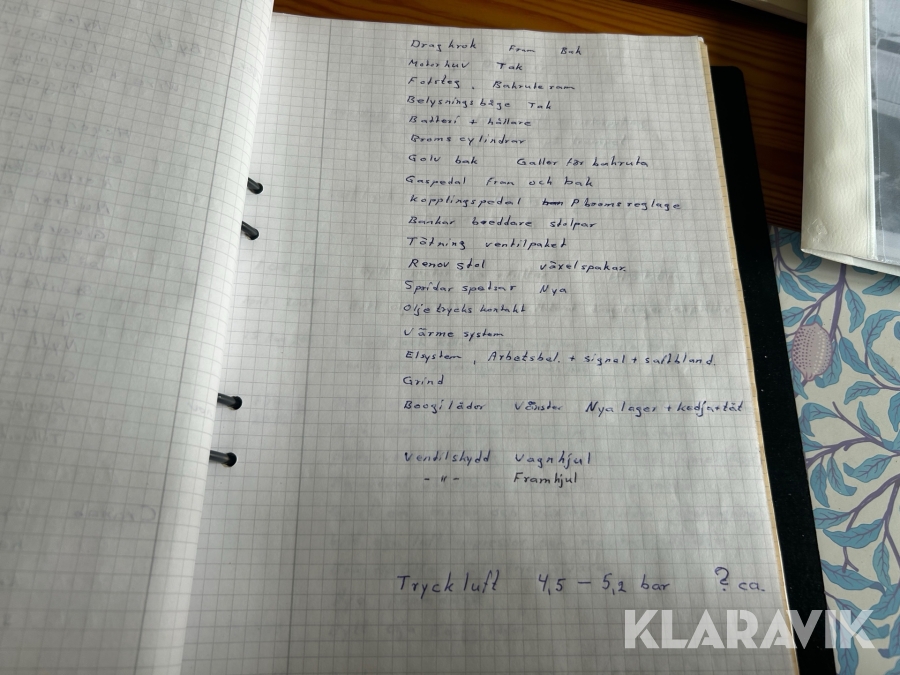 Dragkrok Fram Bak
Motorhuv Tak
Fotsteg, Bakruteram
Belysningsbåge Tak
Batteri + hållare
Bromscylindrar
Golv bak Galler för bakruta
Gaspedal fram och bak
Kopplingspedal P bromsreglage
Bankar breddare stolpar
Tätning ventilpaket
Renov stol växelspakar.
Spridar spetsar Nya
Oljetrycks kontakt
Värme system
Elsystem, Arbetsbel. + signal + saftbland.
Grind
Boogilådor Vänster Nya lager + kedjortät
Ventilskydd Vagnhjul
- " - Framhjul
Tryckluft 4,5 – 5,2 bar ? ca.
KLARAVIK